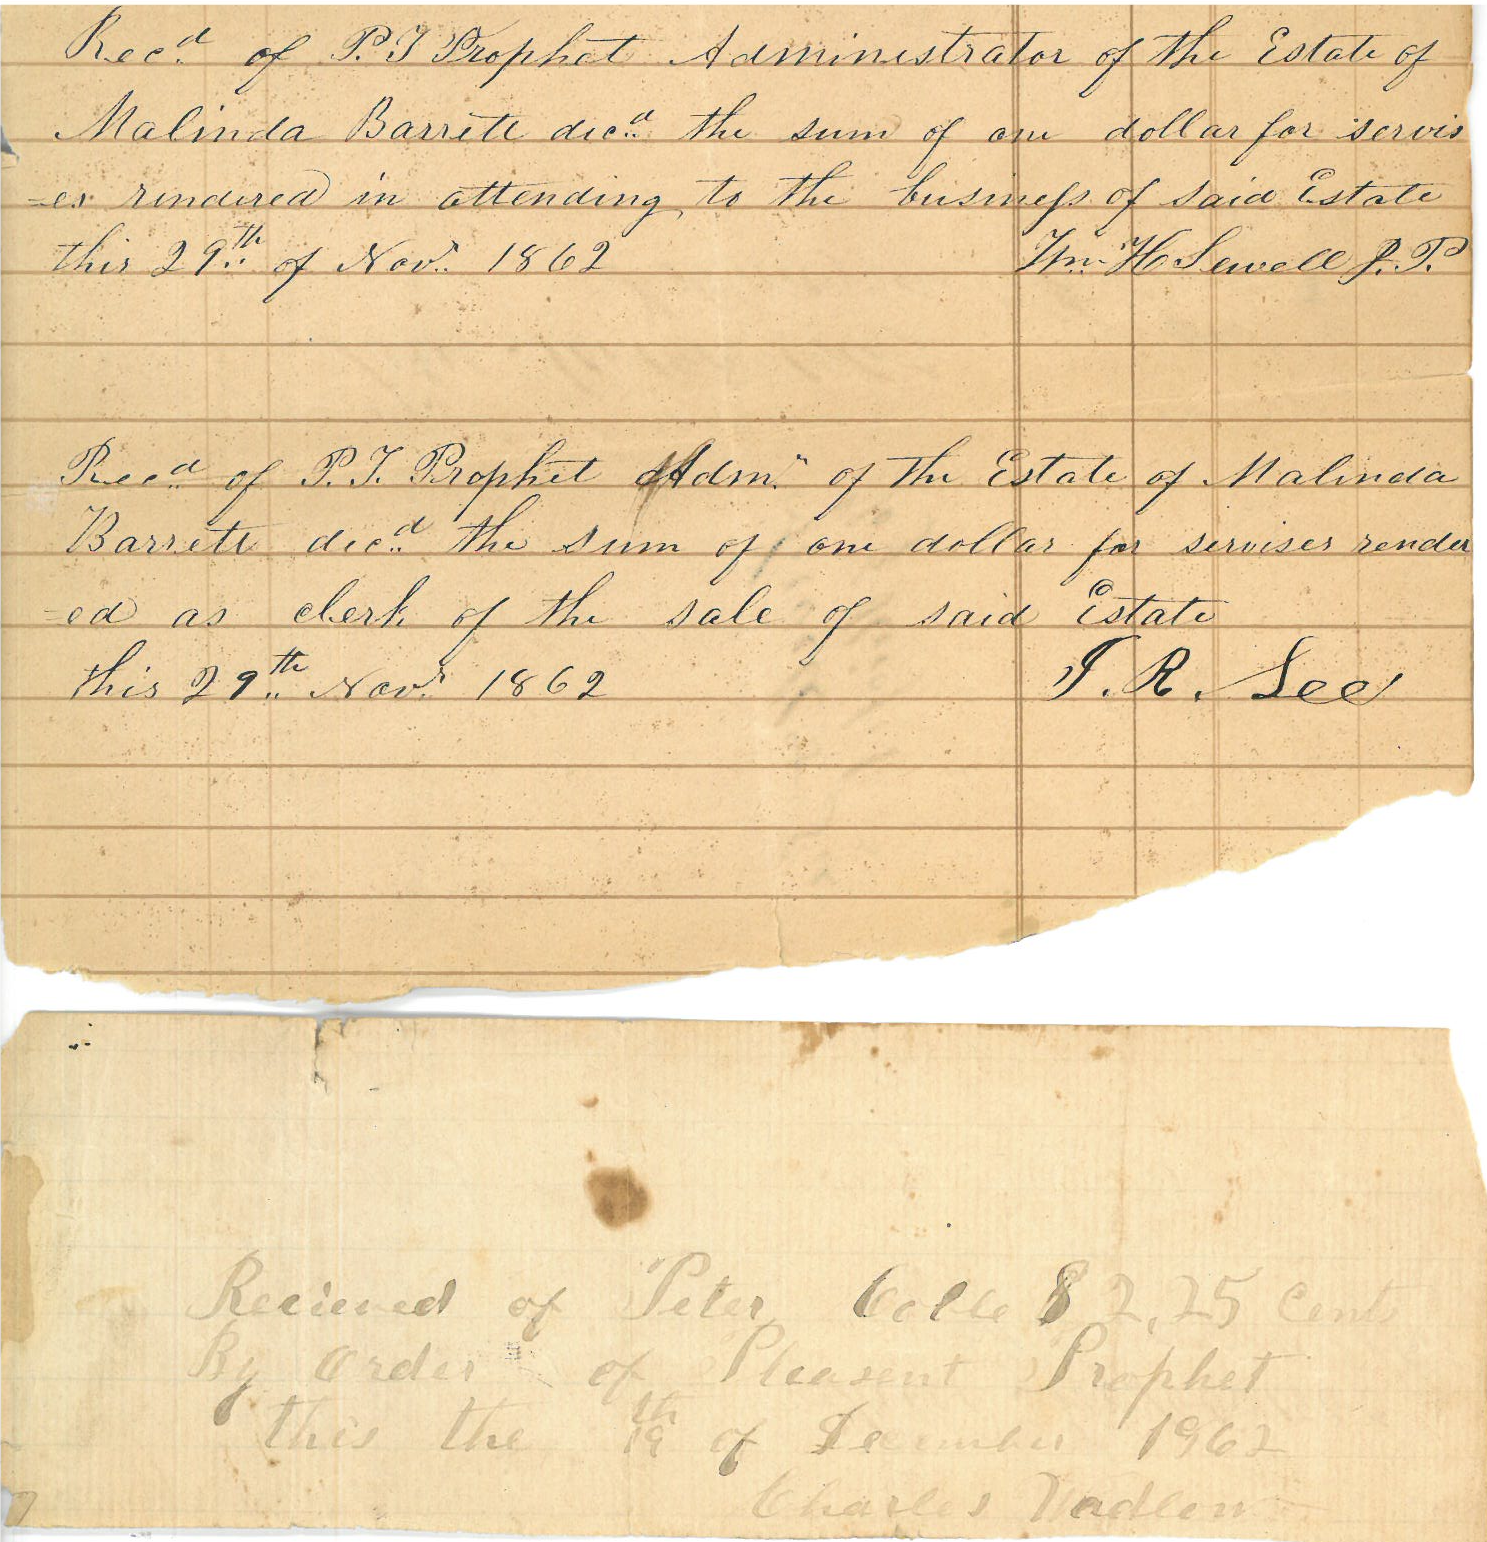 Recd of P. T Prophet Administrator of the Estate of
Malinda Barrett decd the sum of one dollar for servis
=es rendered in attending to the business of said Estate
this 29th of Novr 1862 Wm H Sewell J. P.
Recd of P. T. Prophet Admr of the Estate of Malinda
Barrett decd the sum of one dollar for servises render
=ed as clerk of the sale of said Estate
this 29th Novr 1862 T. R. See
Recieved of Peter Coble $2,25 Cents
By Order of Pleasent Prophet
this the 19th of December 1962
Charles